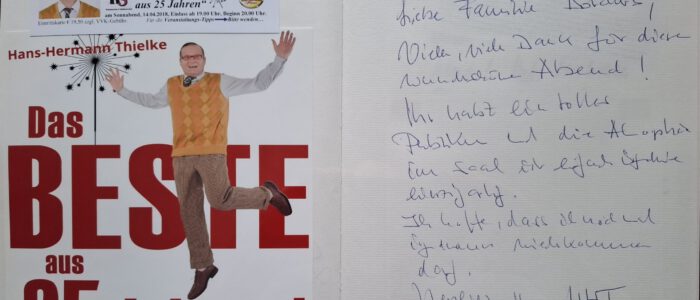 aus 25 Jahren"
am Sonnabend, 14.04.2018, Einlass ab 19.00 Uhr. Beginn 20.00 Uhr.
Hans-Hermann Thielke
Das
BESTE
aus
Liebe Familie
Viele, viele Dank für diesen
wunderschönen Abend!
Ihr habt ein tolles
Publikum und die Atmosphäre
im Saal ist einfach
einzigartig.
Ich hoffe, dass ich noch mal
irgendwann wiederkommen
darf.